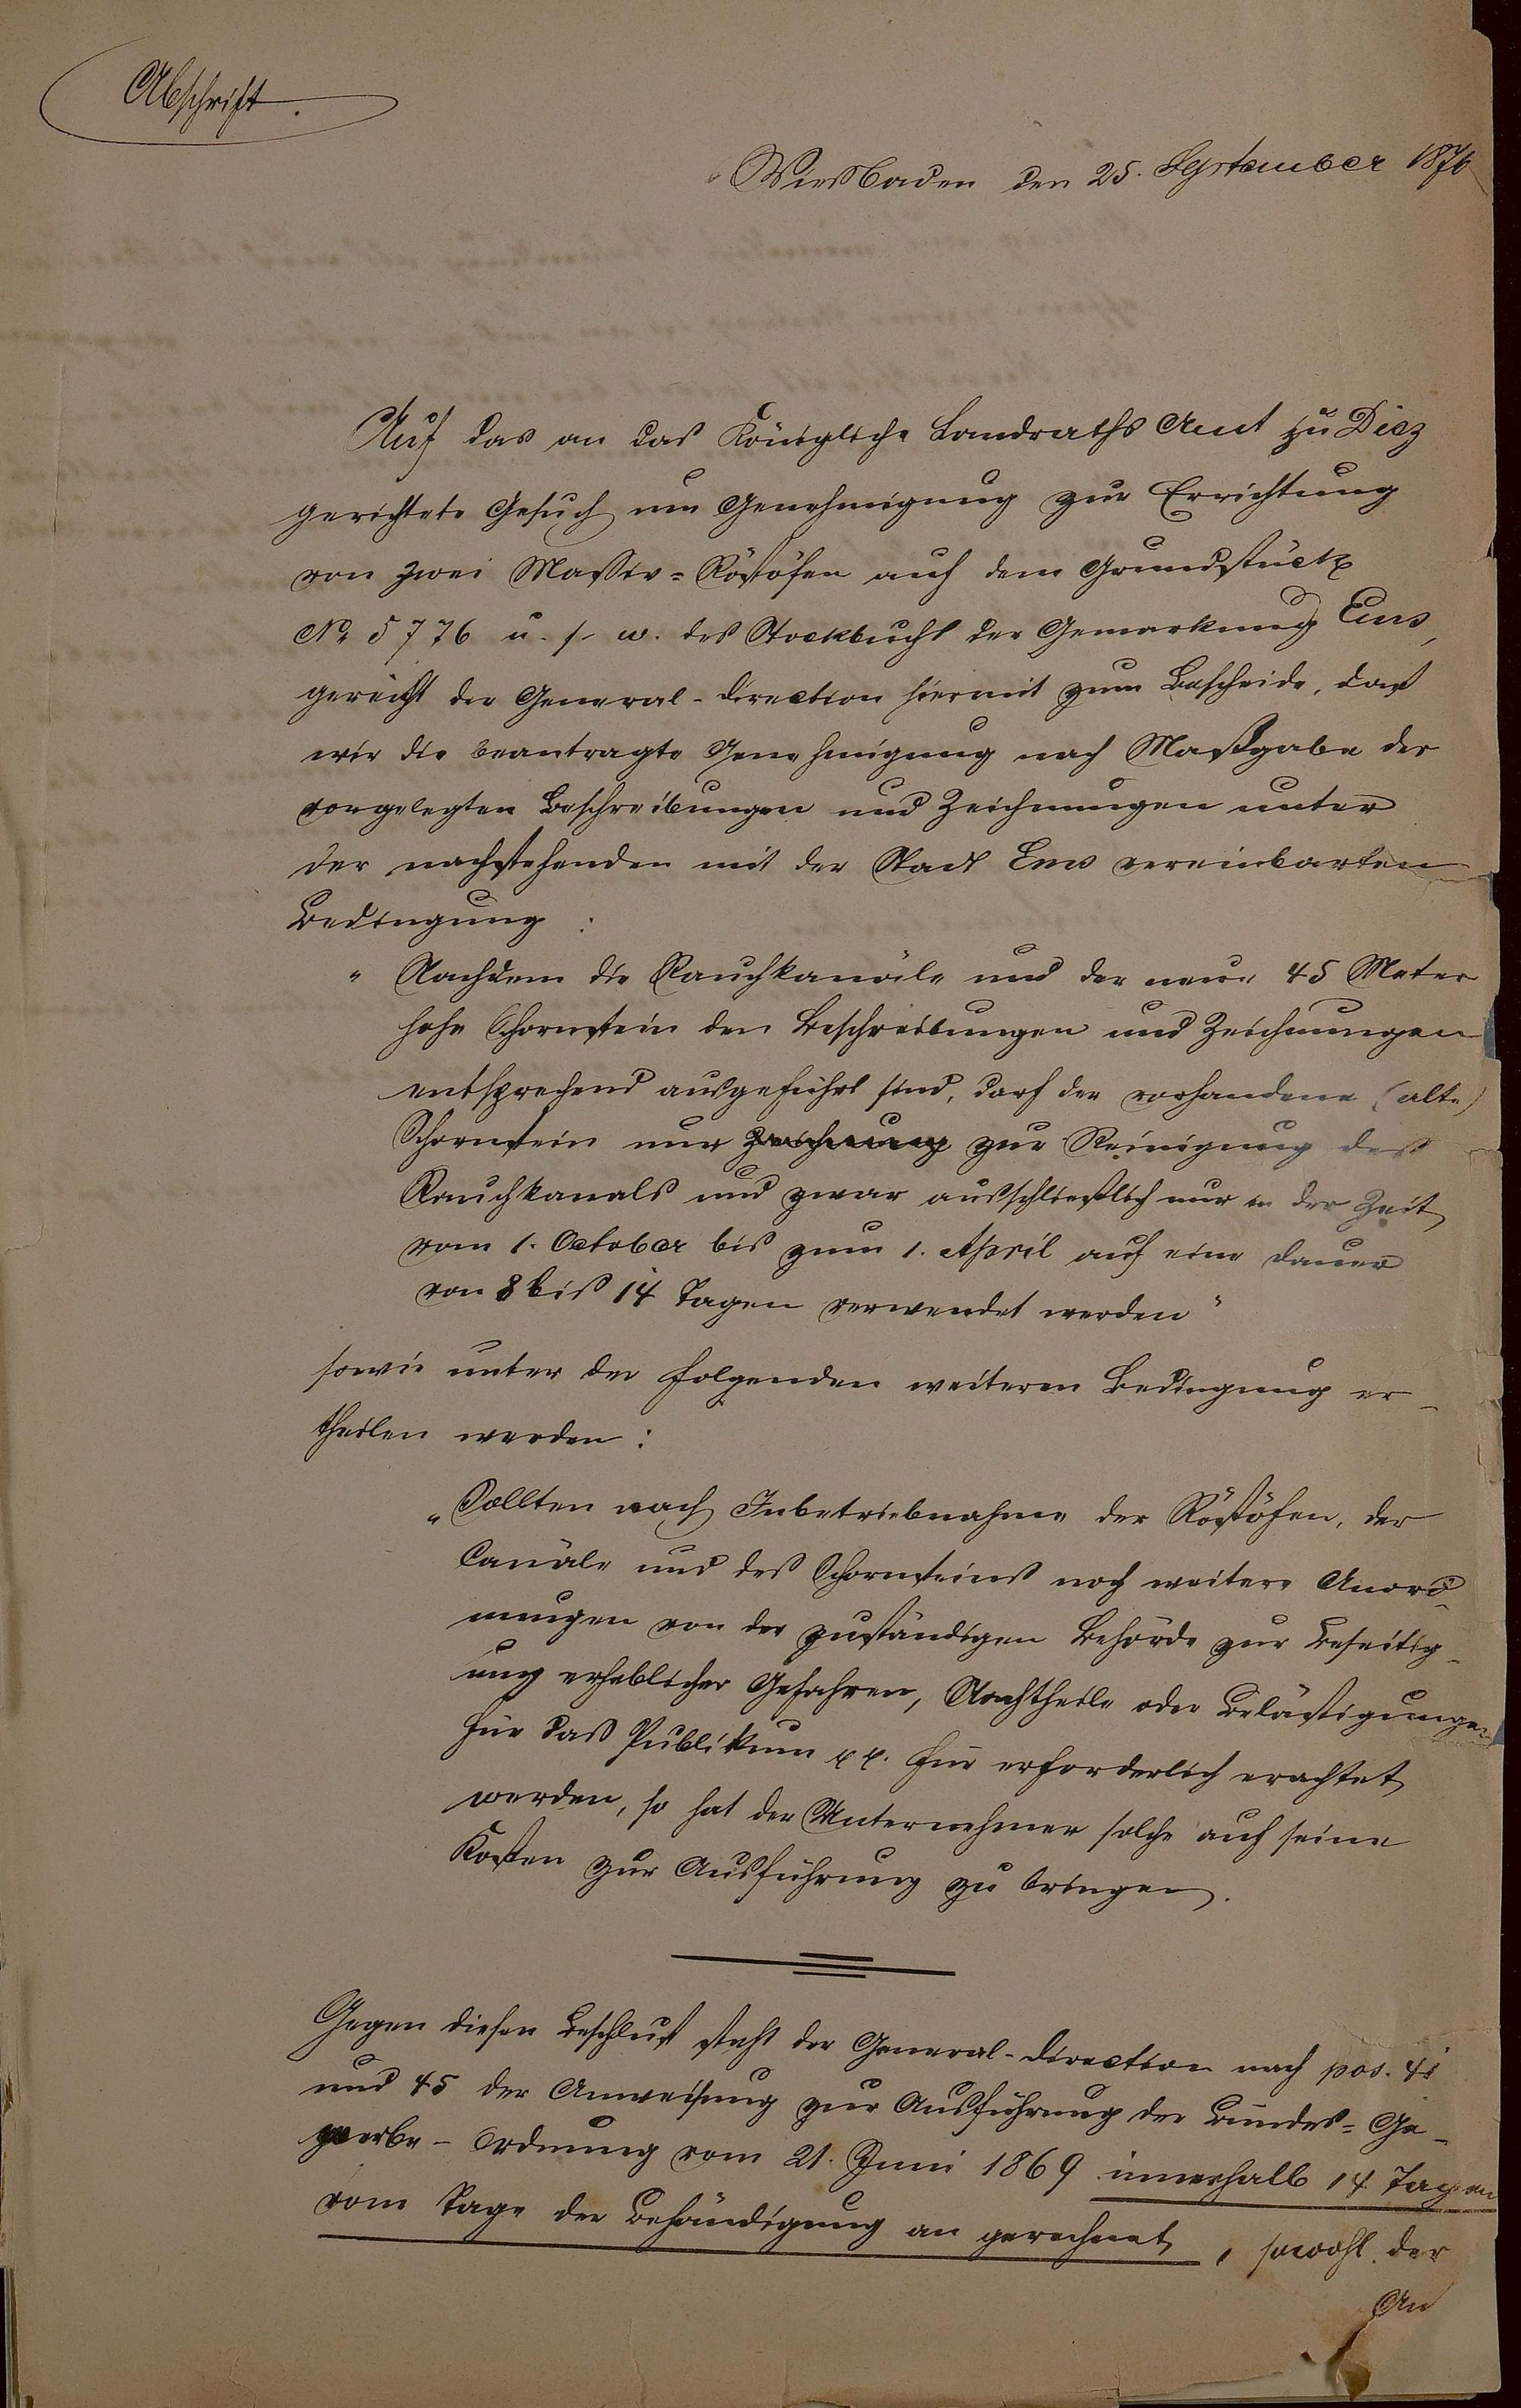 Abschrift.
Wiesbaden den 25. September 1876
Auf das an das Königliche Landraths Amt zu Diez
gerichtete Gesuch um Genehmigung zur Errichtung
von zwei Massiv=Röstöfen auf dem Grundstück
No 5776 u. s. w. des Stockbuchs der Gemarkung Ems,
gereicht der General-Direction hiermit zum Bescheide, daß
wir die beantragte Genehmigung nach Maßgabe der
vorgelegten Beschreibungen und Zeichnungen unter
der nachstehenden mit der Stadt Ems vereinbarten
Bedingung:
„Nachdem die Rauchkanäle und der neue 45 Meter
hohe Schornstein den Beschreibungen und Zeichnungen
entsprechend ausgeführt sind, darf der vorhandene (alte)
Schornstein nur Zeichnung zur Reinigung des
Rauchkanals und zwar ausschließlich nur in der Zeit
vom 1. October bis zum 1. April auf eine Dauer
von 8 bis 14 Tagen verwendet werden"
sowie unter der folgenden weiteren Bedingung er-
theilen werden:
„Sollten nach Inbetriebnahme der Röstöfen, der
Canäle und des Schornsteins noch weitere Anord-
nungen von der zuständigen Behörde zur Beseitig-
ung erheblicher Gefahren, Nachtheile oder Belästigungen
für das Publikum pp. für erforderlich erachtet
werden, so hat der Unternehmer solche auf seine
Kosten zur Ausführung zu bringen.
Gegen diesen Beschluß steht der General-Direction nach pos.
und 45 der Anweisung zur Ausführung der Bundes=Ge-
werbe-Ordnung vom 21. Juni 1869 innerhalb 14 Tagen
vom Tage der Behändigung an gerechnet, sowohl der
An